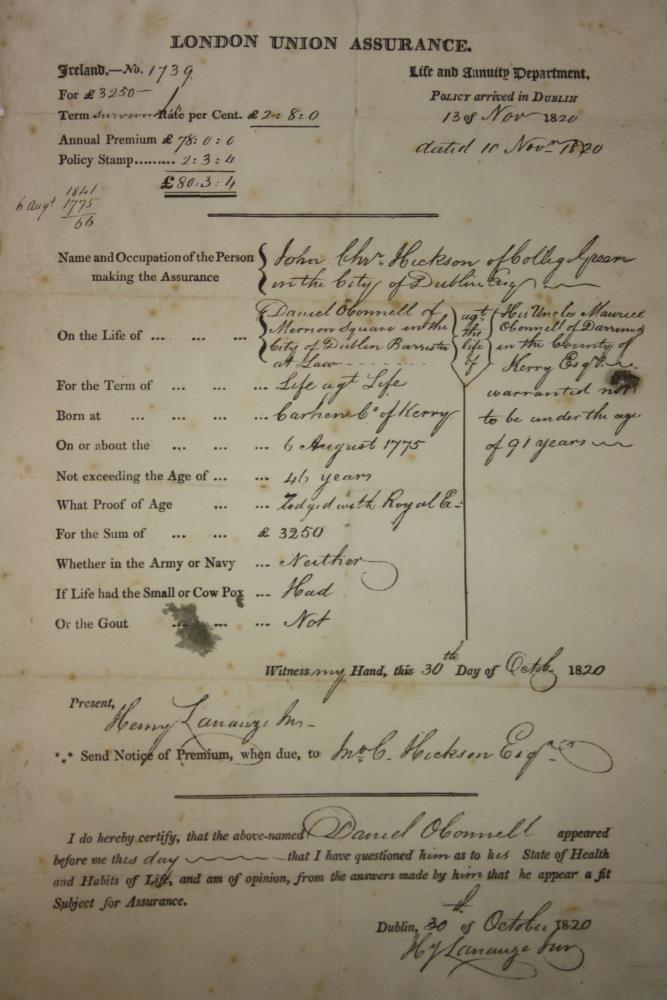 LONDON UNION ASSURANCE.
Ireland.—No. 1739
For £ 3250—
Term Rate per Cent. £2:8:0
Annual Premium £ 78:0:0
Policy Stamp......... 2:3:4
£80:3:4
Life and Annuity Department.
POLICY arrived in DUBLIN
13 of Nov 1820
dated 10 Novr 1820
1841
6 Augt 1775
66
Name and Occupation of the Person making the Assurance
John Chr. Hickson of College Green
in the City of Dublin Esq
On the Life of ... ... ...
Daniel OConnell of
Merrion Square in the
City of Dublin Barrister
at Law
agt
the
life
of
His Uncle Maurice
OConnell of
in the County of
Kerry Esqr.
warranted not
to be under the age
of 91 years
For the Term of ... ... ... Life agt Life
Born at ... ... ... ... Carhen Co of Kerry
On or about the ... ... ... 6 August 1775
Not exceeding the Age of ... ... 46 years
What Proof of Age ... ... Lodged with Royal E-
For the Sum of ... ... £ 3250
Whether in the Army or Navy ... Neither
If Life had the Small or Cow Pox ... Had
Or the Gout ... ... ... Not
Witness my Hand, this 30th Day of October 1820
Present,
Henry Lanauze Jnr
*** Send Notice of Premium, when due, to Jno C. Hickson Esqr.
I do hereby certify, that the above-named Daniel OConnell appeared
before me this day that I have questioned him as to his State of Health
and Habits of Life, and am of opinion, from the answers made by him that he appear a fit
Subject for Assurance.
Dublin, 30th of October 1820
Hy Lanauze Jnr